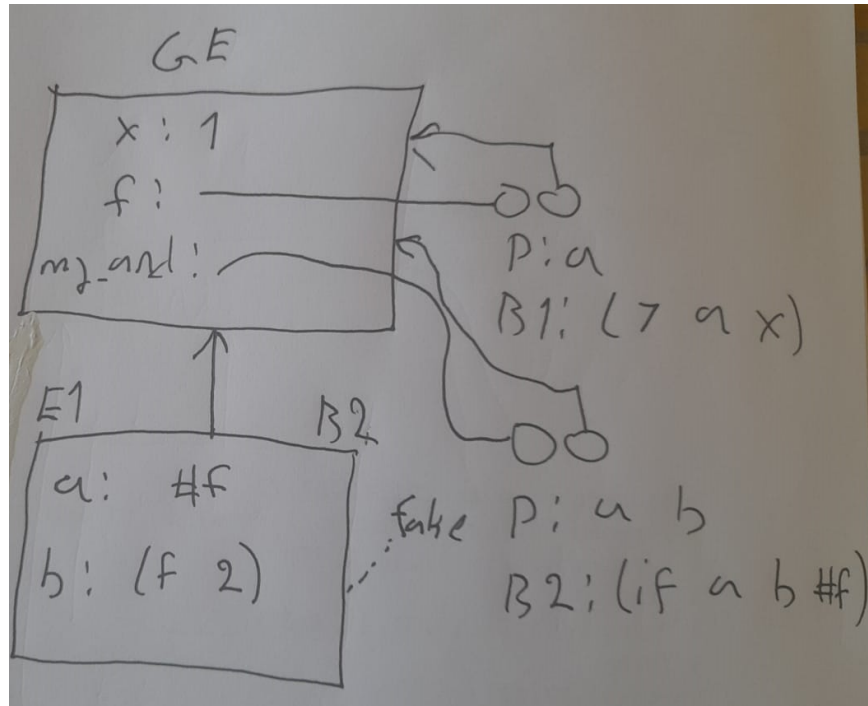 GE
x: 1
f:
my_and:
P: a
B1: (> a x)
E1
B2
a: #f
b: (f 2)
fake
P: a b
B2: (if a b #f)